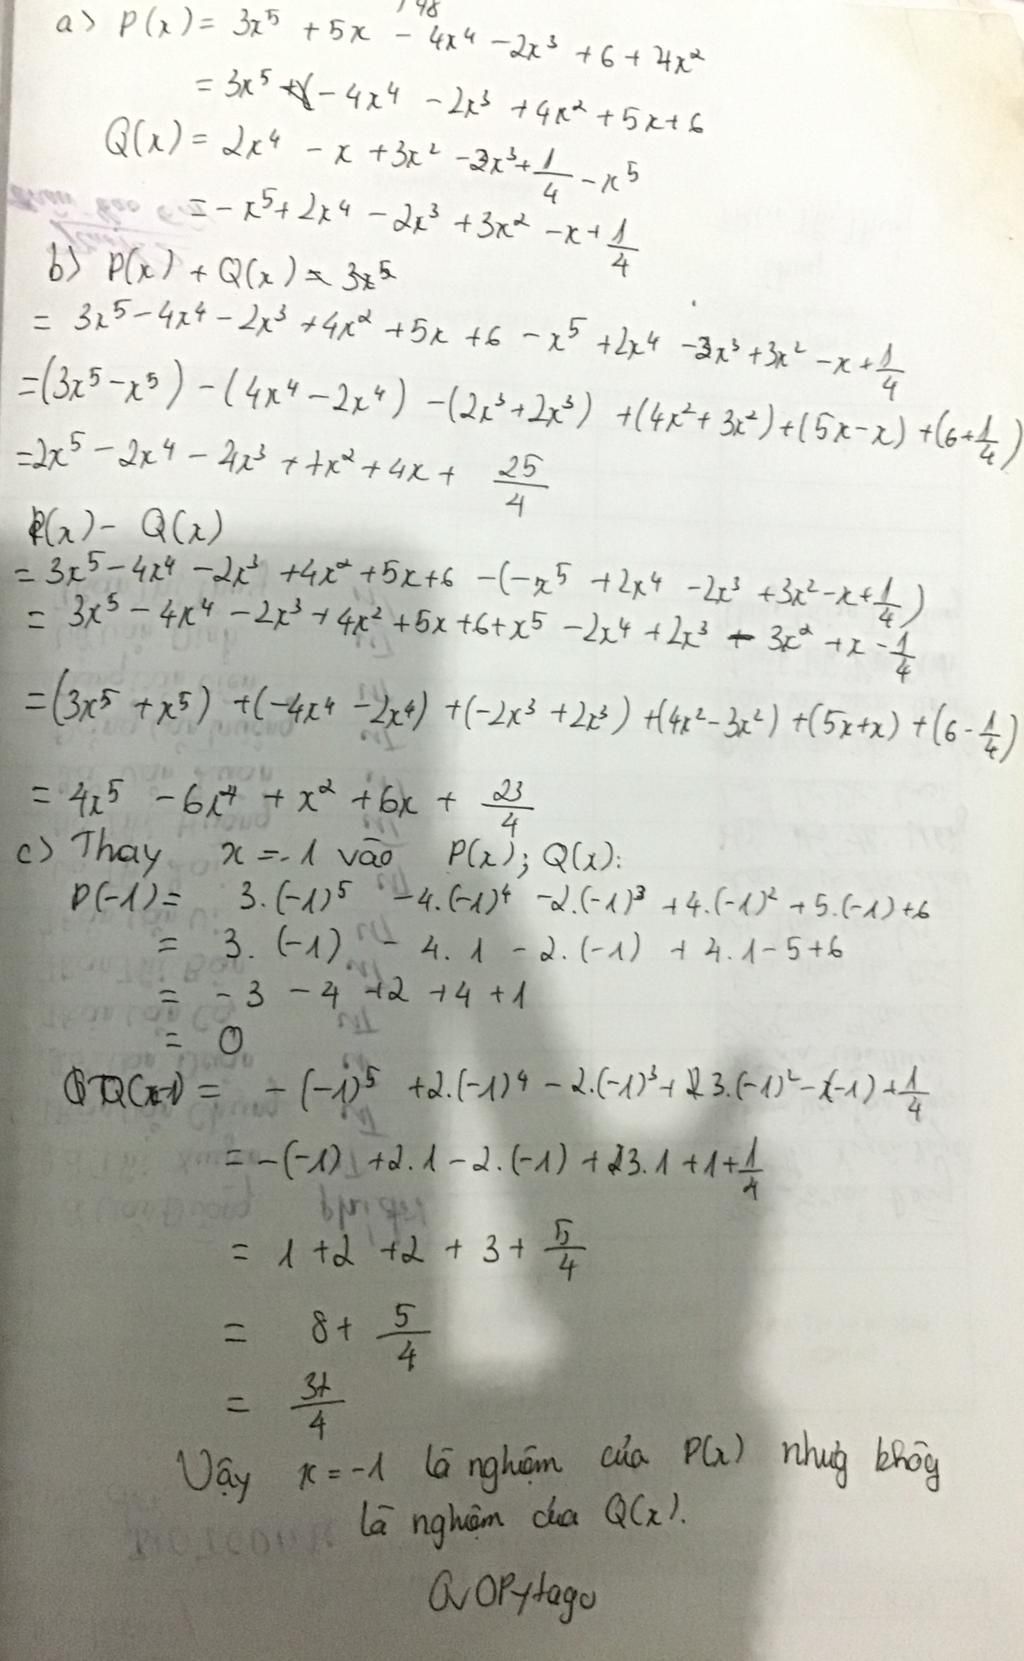 a) P(x) = 3x⁵ + 5x - 4x⁴ - 2x³ + 6 + 4x²
= 3x⁵ - 4x⁴ - 2x³ + 4x² + 5x + 6
Q(x) = 2x⁴ - x + 3x² - 2x³ + 1/4 - x⁵
= -x⁵ + 2x⁴ - 2x³ + 3x² - x + 1/4
b) P(x) + Q(x) = 3x⁵
= 3x⁵ - 4x⁴ - 2x³ + 4x² + 5x + 6 - x⁵ + 2x⁴ - 2x³ + 3x² - x + 1/4
= (3x⁵ - x⁵) - (4x⁴ - 2x⁴) - (2x³ + 2x³) + (4x² + 3x²) + (5x - x) + (6 + 1/4)
= 2x⁵ - 2x⁴ - 4x³ + 7x² + 4x + 25/4
P(x) - Q(x)
= 3x⁵ - 4x⁴ - 2x³ + 4x² + 5x + 6 - (-x⁵ + 2x⁴ - 2x³ + 3x² - x + 1/4)
= 3x⁵ - 4x⁴ - 2x³ + 4x² + 5x + 6 + x⁵ - 2x⁴ + 2x³ - 3x² + x - 1/4
= (3x⁵ + x⁵) + (-4x⁴ - 2x⁴) + (-2x³ + 2x³) + (4x² - 3x²) + (5x + x) + (6 - 1/4)
= 4x⁵ - 6x⁴ + x² + 6x + 23/4
c) Thay x = -1 vào P(x); Q(x):
P(-1) = 3.(-1)⁵ - 4.(-1)⁴ - 2.(-1)³ + 4.(-1)² + 5.(-1) + 6
= 3.(-1) - 4.1 - 2.(-1) + 4.1 - 5 + 6
= -3 - 4 + 2 + 4 + 1
= 0
Q(-1) = -(-1)⁵ + 2.(-1)⁴ - 2.(-1)³ + 3.(-1)² - (-1) + 1/4
= -(-1) + 2.1 - 2.(-1) + 3.1 + 1 + 1/4
= 1 + 2 + 2 + 3 + 5/4
= 8 + 5/4
= 37/4
Vậy x = -1 là nghiệm của P(x) nhưng không
là nghiệm của Q(x).
QvOPytago